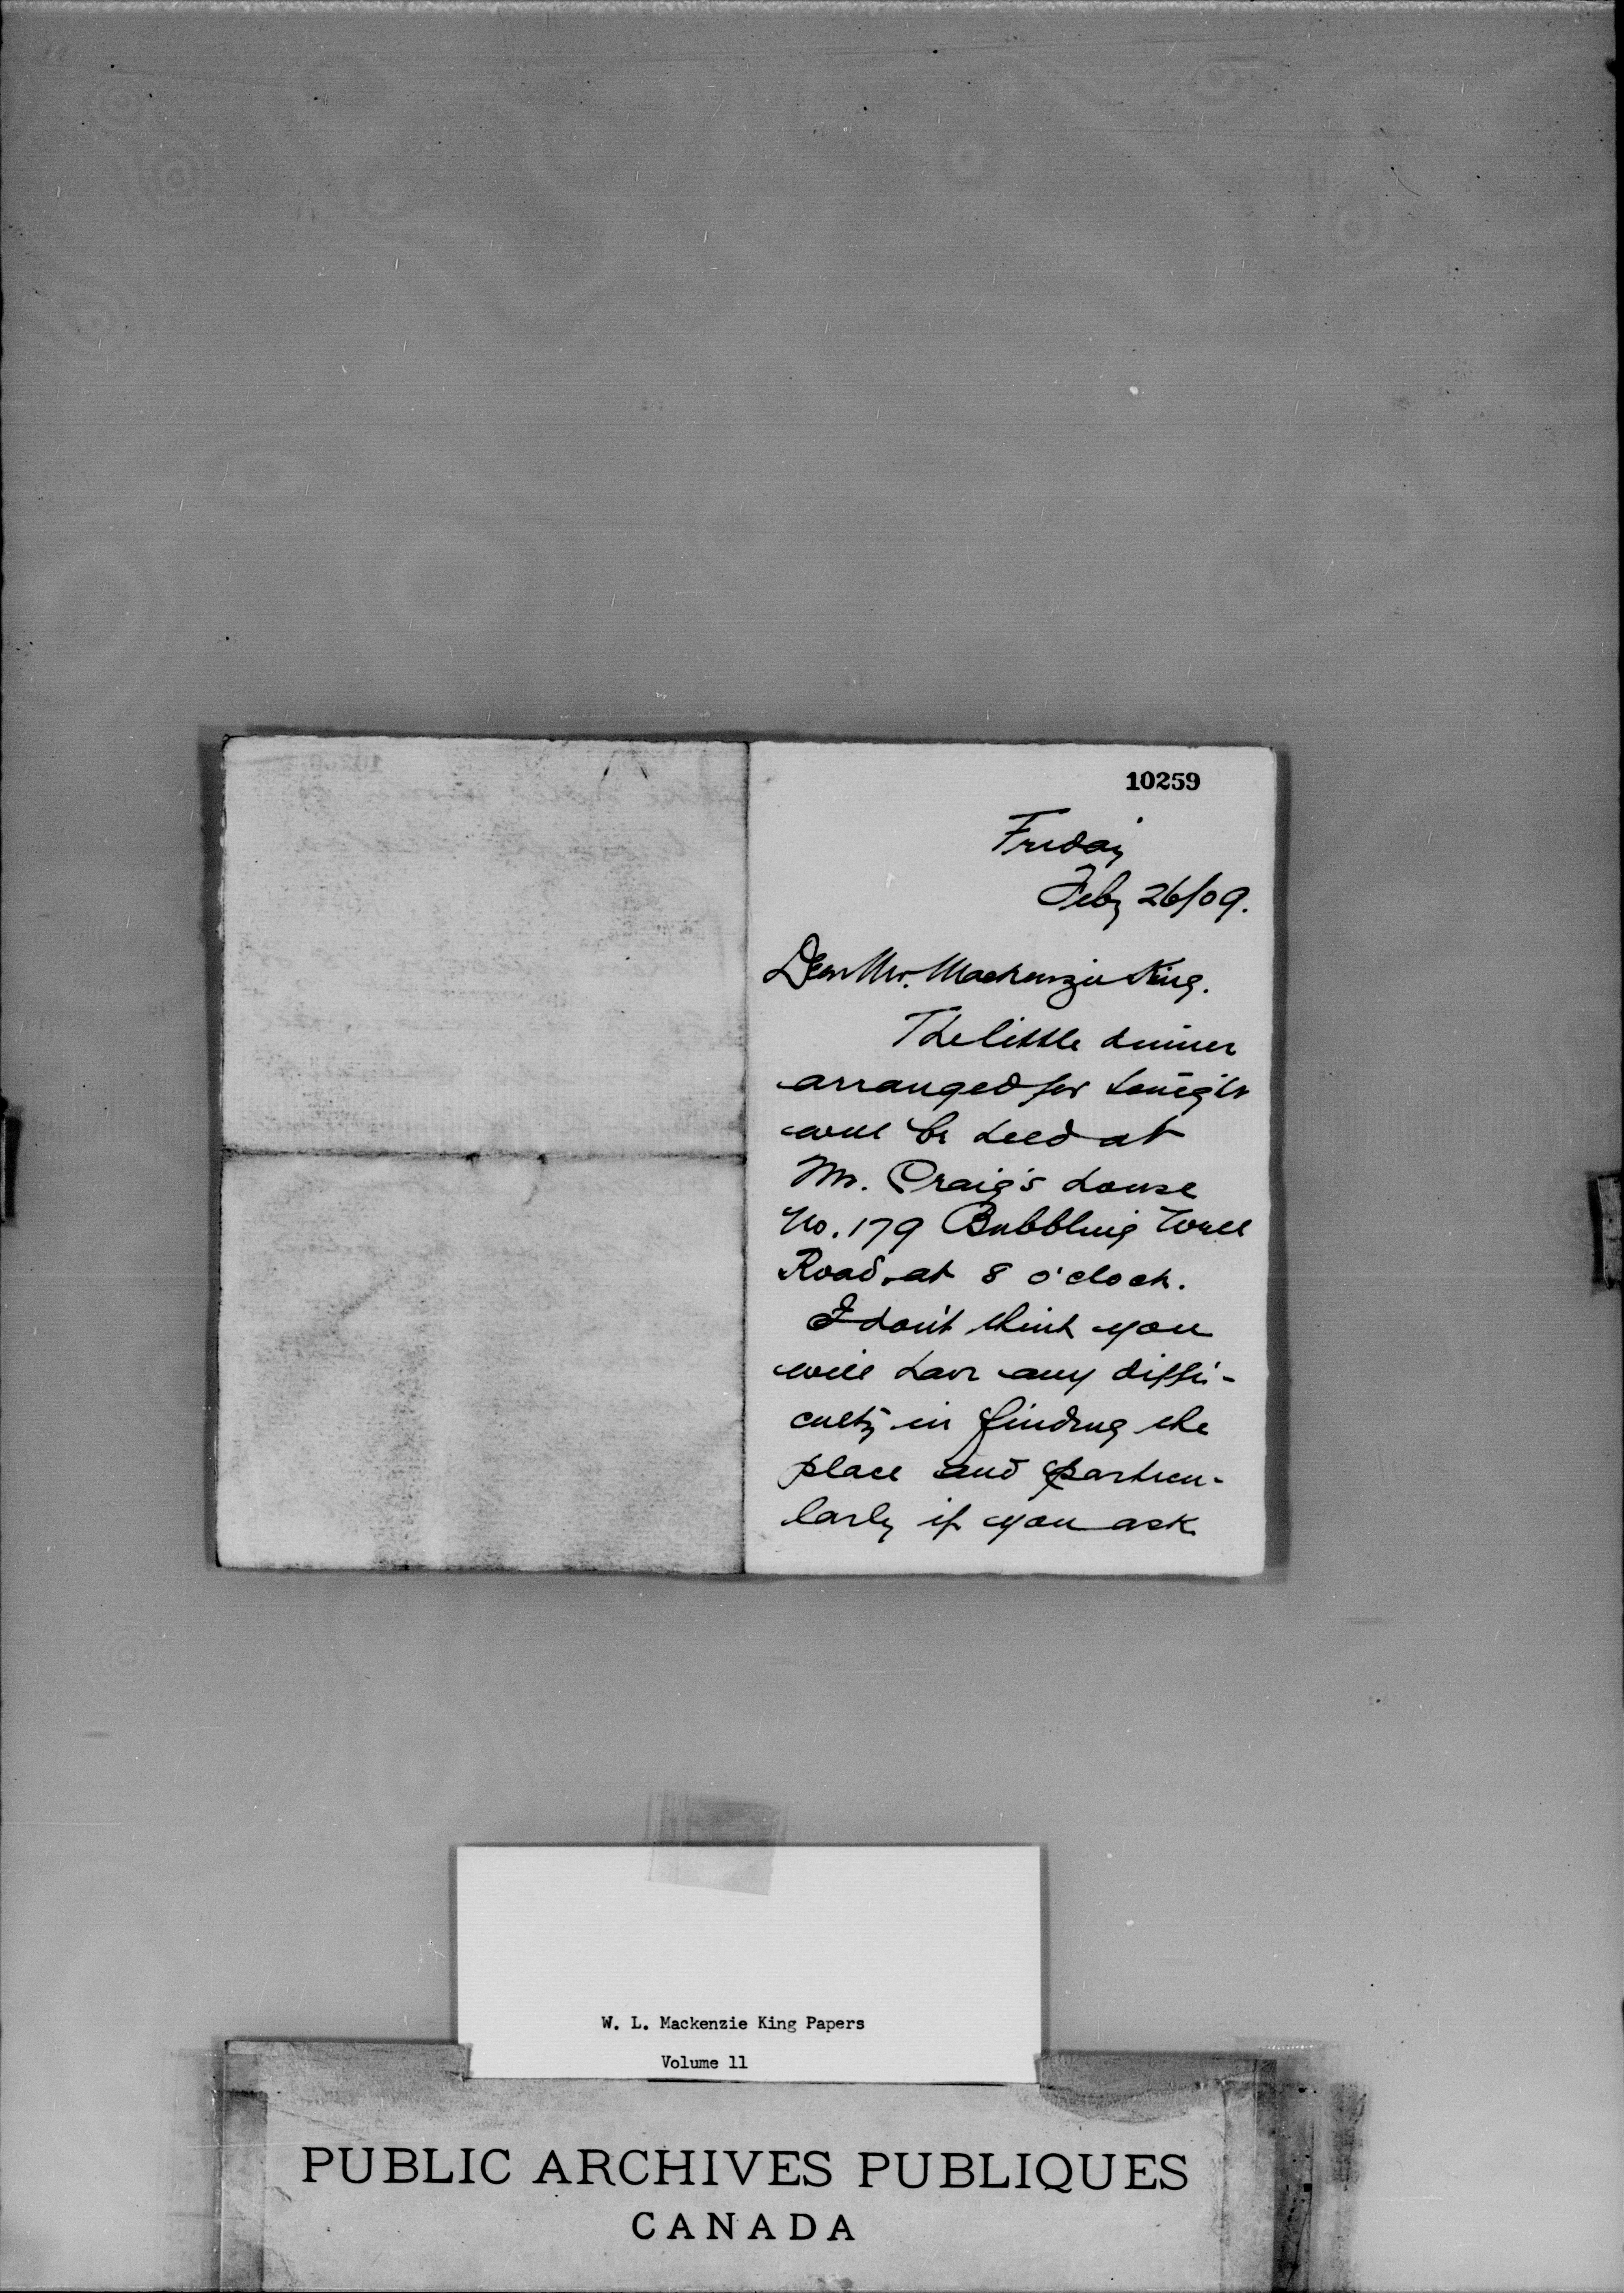 10259
Friday
Feby 26/09.
Dear Mr. Mackenzie King.
The little dinner
arranged for tonight
will be held at
Mr. Craig's house
No. 179 Bubbling Well
Road, at 8 o'clock.
I don't think you
will have any diffi-
culty in finding the
place and particu-
larly if you ask
W. L. Mackenzie King Papers
Volume 11
PUBLIC ARCHIVES PUBLIQUES
CANADA